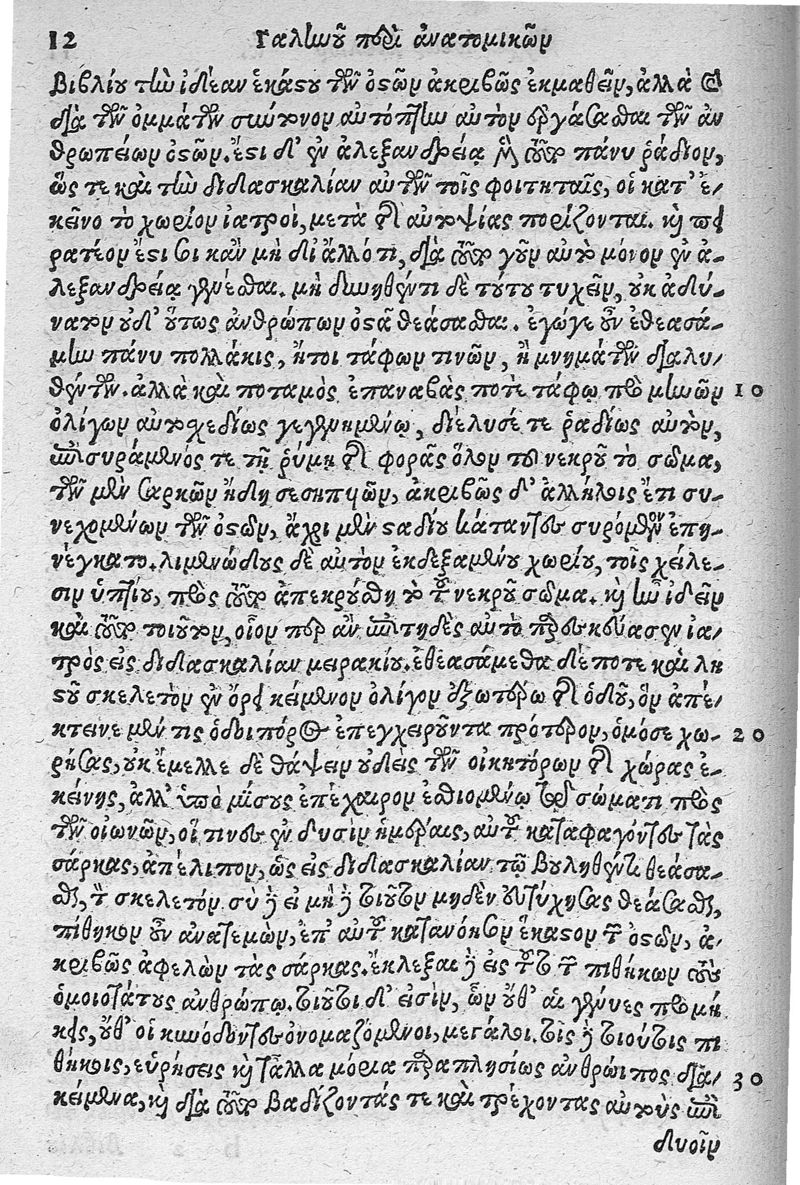 12 Γαλίωοῦ περὶ ἀνατομικῶν
βιβλίου τὴν ἰδέαν ἑκάστου τῶν ὀστῶν ἀκριβῶς ἐκμαθεῖν, ἀλλὰ καὶ
διὰ τῶν ὀμμάτων σύντονον αὐτόπτην αὐτὸν ἐργάσασθαι τῶν ἀν
θρωπείων ὀστῶν. ἔστι δ' ἐν ἀλεξανδρείᾳ μὲν τοῦτο πάνυ ῥάδιον,
ὥς τε καὶ τὴν διδασκαλίαν αὐτῶν τοῖς φοιτηταῖς, οἱ κατ' ἐ-
κεῖνο τὸ χωρίον ἰατροὶ, μετὰ τῆς αὐτοψίας πορίζονται. καὶ πει
ρατέον ἔστι σοι κἂν μὴ δι' ἄλλό τι, διὰ τοῦτο γοῦν αὐτὸ μόνον ἐν ἀ-
λεξανδρείᾳ γενέσθαι. μὴ δυνηθέντι δὲ τούτου τυχεῖν, οὐκ ἀδύ-
νατον οὐδ' οὕτως ἀνθρώπων ὀστᾶ θεάσασθαι. ἐγώγε οὖν ἐθεασά-
μην πάνυ πολλάκις, ἤτοι τάφων τινῶν, ἢ μνημάτων διαλυ-
θέντων. ἀλλὰ καὶ ποταμὸς ἐπαναβάς ποτὲ τάφῳ πρὸ μηνῶν 10
ὀλίγων αὐτοσχεδίως γεγενημένῳ, διέλυσέ τε ῥαδίως αὐτὸν,
ἐπισυράμενός τε τῇ ῥύμῃ τῆς φορᾶς ὅλον τοῦ νεκροῦ τὸ σῶμα,
τῶν μὲν σαρκῶν ἤδη σεσηπυιῶν, ἀκριβῶς δ' ἀλλήλοις ἔτι συ-
νεχομένων τῶν ὀστῶν, ἄχρι μὲν σταδίου κάταντες συρόμενον ἐπη-
νέγκατο. λιμενώδους δὲ αὐτὸν ἐκδεξαμένου χωρίου, τοῖς χείλε-
σιν ὑπτίου, πρὸς τοῦτο ἀπεκρούσθη τὸ τοῦ νεκροῦ σῶμα. καὶ ἦν ἰδεῖν
καὶ τοῦτο τοιοῦτον, οἷον περ ἂν ἐπιτηδὲς αὐτὸ παρεσκεύασεν ἰα-
τρὸς εἰς διδασκαλίαν μειρακίου. ἐθεασάμεθα δέ ποτε καὶ λη
στοῦ σκελετὸν ἐν ὄρει κείμενον ὀλίγον ἐξωτέρω τῆς ὁδοῦ, ὃν ἀπέ-
κτεινε μέν τις ὁδοιπόρος ἐπεγχειροῦντα πρότερον, ὁμόσε χω- 20
ρήσας, οὐκ ἔμελλε δὲ θάψειν οὐδεὶς τῶν οἰκητόρων τῆς χώρας ἐ-
κείνης, ἀλλ' ὑπὸ μίσους ἐπέχαιρον ἐσθιομένῳ τῷ σώματι πρὸς
τῶν οἰωνῶν, οἵ τινες ἐν δυσὶν ἡμέραις, αὐτοῦ καταφαγόντες τὰς
σάρκας, ἀπέλιπον, ὡς εἰς διδασκαλίαν τῷ βουληθέντι θεάσα-
σθαι, τὸν σκελετόν. σὺ δὲ εἰ μὴ δὲ τιοῦτον μηδὲν εὐτύχησας θεάσασθαι,
πίθηκον οὖν ἀνατεμὼν, ἐπ' αὐτοῦ κατανόησον ἕκαστον τῶν ὀστῶν, ἀ-
κριβῶς ἀφελὼν τὰς σάρκας. ἔκλεξαι δὲ εἰς τοῦτο τῶν πιθήκων τοὺς
ὁμοιοτάτους ἀνθρώπῳ. τιοῦτοι δ' εἰσὶν, ὧν οὔθ' αἱ γένυες προμή
κεις, οὔθ' οἱ κυνόδοντες ὀνομαζόμενοι, μεγάλοι. τοῖς δὲ τιούτοις πι
θήκοις, εὑρήσεις καὶ τἆλλα μόρια παραπλησίως ἀνθρώποις δια- 30
κείμενα, καὶ διὰ τοῦτο βαδίζοντάς τε καὶ τρέχοντας αὐτοὺς ἐπὶ
δυοῖν